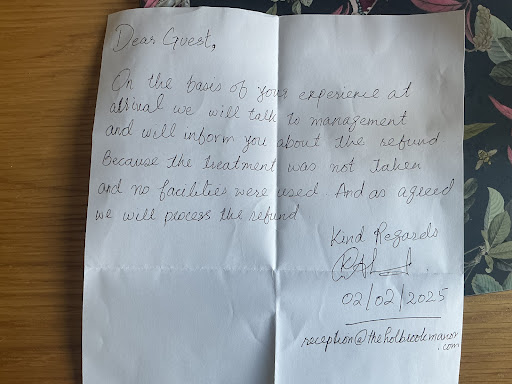 Dear Guest,
On the basis of your experience at
arrival we will talk to management
and will inform you about the refund
Because the treatment was not taken
and no facilities were used. And as agreed
we will process the refund
Kind Regards
02/02/2025
reception@theholbrookmanor
.com